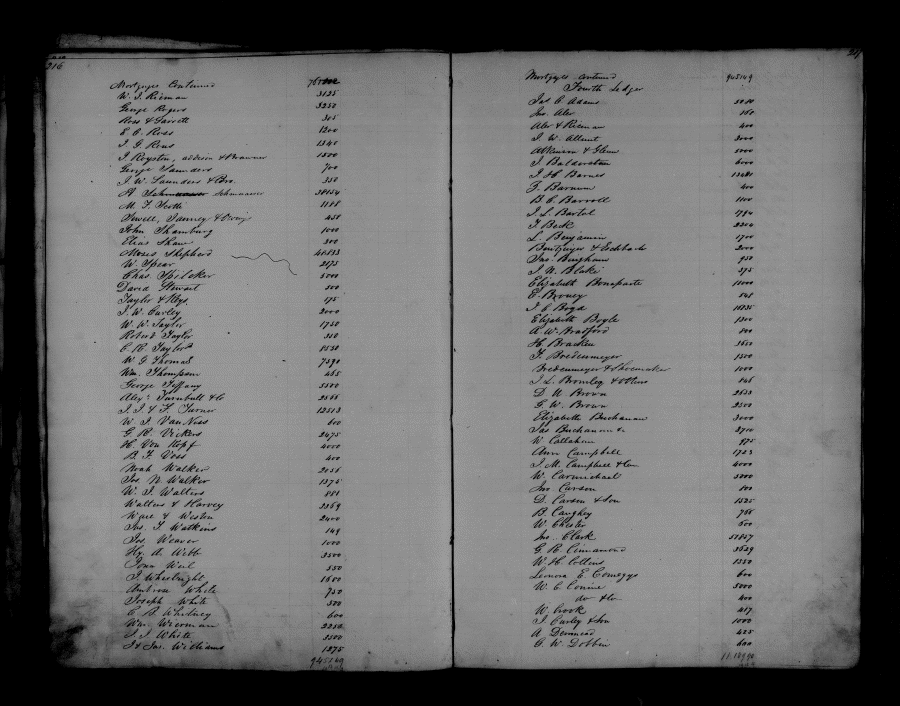 216
Mortgages Continued
W. J. Rieman 3125
George Rogers 3250
Ross & Garrett 305
E. C. Ross 1200
1340
J Royston, 1500
George Saunders 700
J. W. Saunders & Bro. 350
A. Schmuaser 38154
M. F. Scotti
Sewell, 450
John Shamburg 1000
Elias Shaw 300
Moses Shepherd
W. Spear 2575
Chas. Spilcker 5000
David Stewart 500
Taylor & Keys 175
J. W. Turley 2000
W. W. Taylor 1750
Robert Taylor 350
C. R. Taylor 1550
W. G Thomas
Wm. Thompson 465
George Tiffany 5500
Alex. Turnbull & Co 2566
J. J. & F. Turner 12513
W. J. Van Ness 600
G. R. Vickers 2475
H. Von Kopf 4000
B. F. Voss 400
Noah Walker 2056
Jos. N. Walker 1375
W. J. Walters 801
Walters & Harvey 3269
Ware & 2400
Jas. F. Watkins 149
Jos. Weaver 1000
Hy. A. Webb 3500
John Weil 550
J. Wheelright 1600
Ambrose White 750
Joseph White 500
C. B. Whitney 600
Wm. Wierman 2250
J. J. White 3200
Jas. Williams 1375
945149
217
Mortgages continued 945149
Fourth Ledger
Jas C. Adams 5010
Jno. Aler 160
Aler & Rieman 400
J. W. Allnut 3000
Atkinson & Glenn 5000
J. Balderston 6000
J. H. Barnes
F. Barnum 400
B. C. Barroll 1100
J. L. Bartol 1794
J Beck 2204
L. Benjamin 1700
2000
Jas. Bingham 950
J. N. Blake 375
Elizabeth Bonaparte 11000
E. Boney 548
J C Boyd 16835
Elizabeth Boyle 1300
A. W. Bradford 800
H. Bracken
F. Bredenmeyer 1500
Bredenmeyer & Shoemaker 1000
J. L. Bromley & others 846
D. U. Brown 2633
G. W. Brown 2500
Elizabeth Buchanan 3000
Jas Buchanan 3700
W. Callahan 975
Ann Campbell 1723
J. M. Campbell 4000
W. Carmichael 5000
Jno. Carson 800
D. Carson & Son 1525
B. Caughey 766
W. Chester 600
Jno. Clark 51857
G. R. Cinnamond 3629
W. H. Collins 1350
Leonora E. Comegys 600
W. C. Conine 5000
do & Co 400
W. Crook 457
J. Curley & Son 1000
A. 425
G. W. Dobbin 600